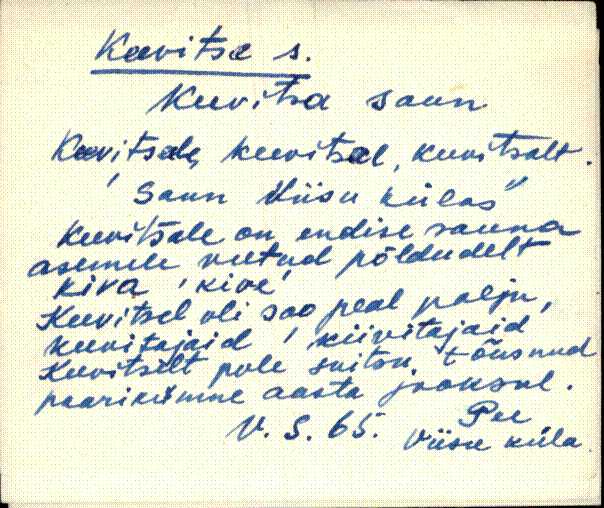 Keevitse s.
Keevitsa saun
Keevitsele, keevitsel, keevitselt.
'Saun Viisu külas'
Keevitsele on endise sauna
asemele veetud põldudelt
kiva 'kive'
Keevitsel oli soo peal palju,
keevitajaid 'kiivitajaid'
Keevitselt pole suitsu tõusnud
paarikümne aasta jooksul.
V. S. 65. Pee
Viisu küla.